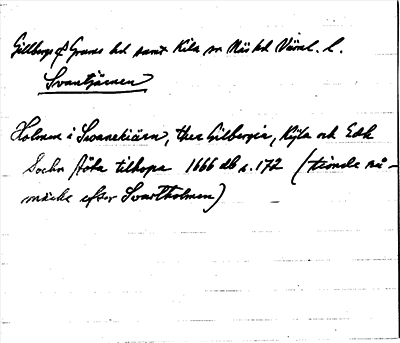 Gillbergs o Grums hd samt Kila sn Näs hd Värml. l.
Svantjärnen
Holmen i Swanekiärn, ther Gilberga, Kijla och Edh
Sochn stöta tilhopa 1666 db s. 172 (tionde rå-
märke efter Svartholmen)